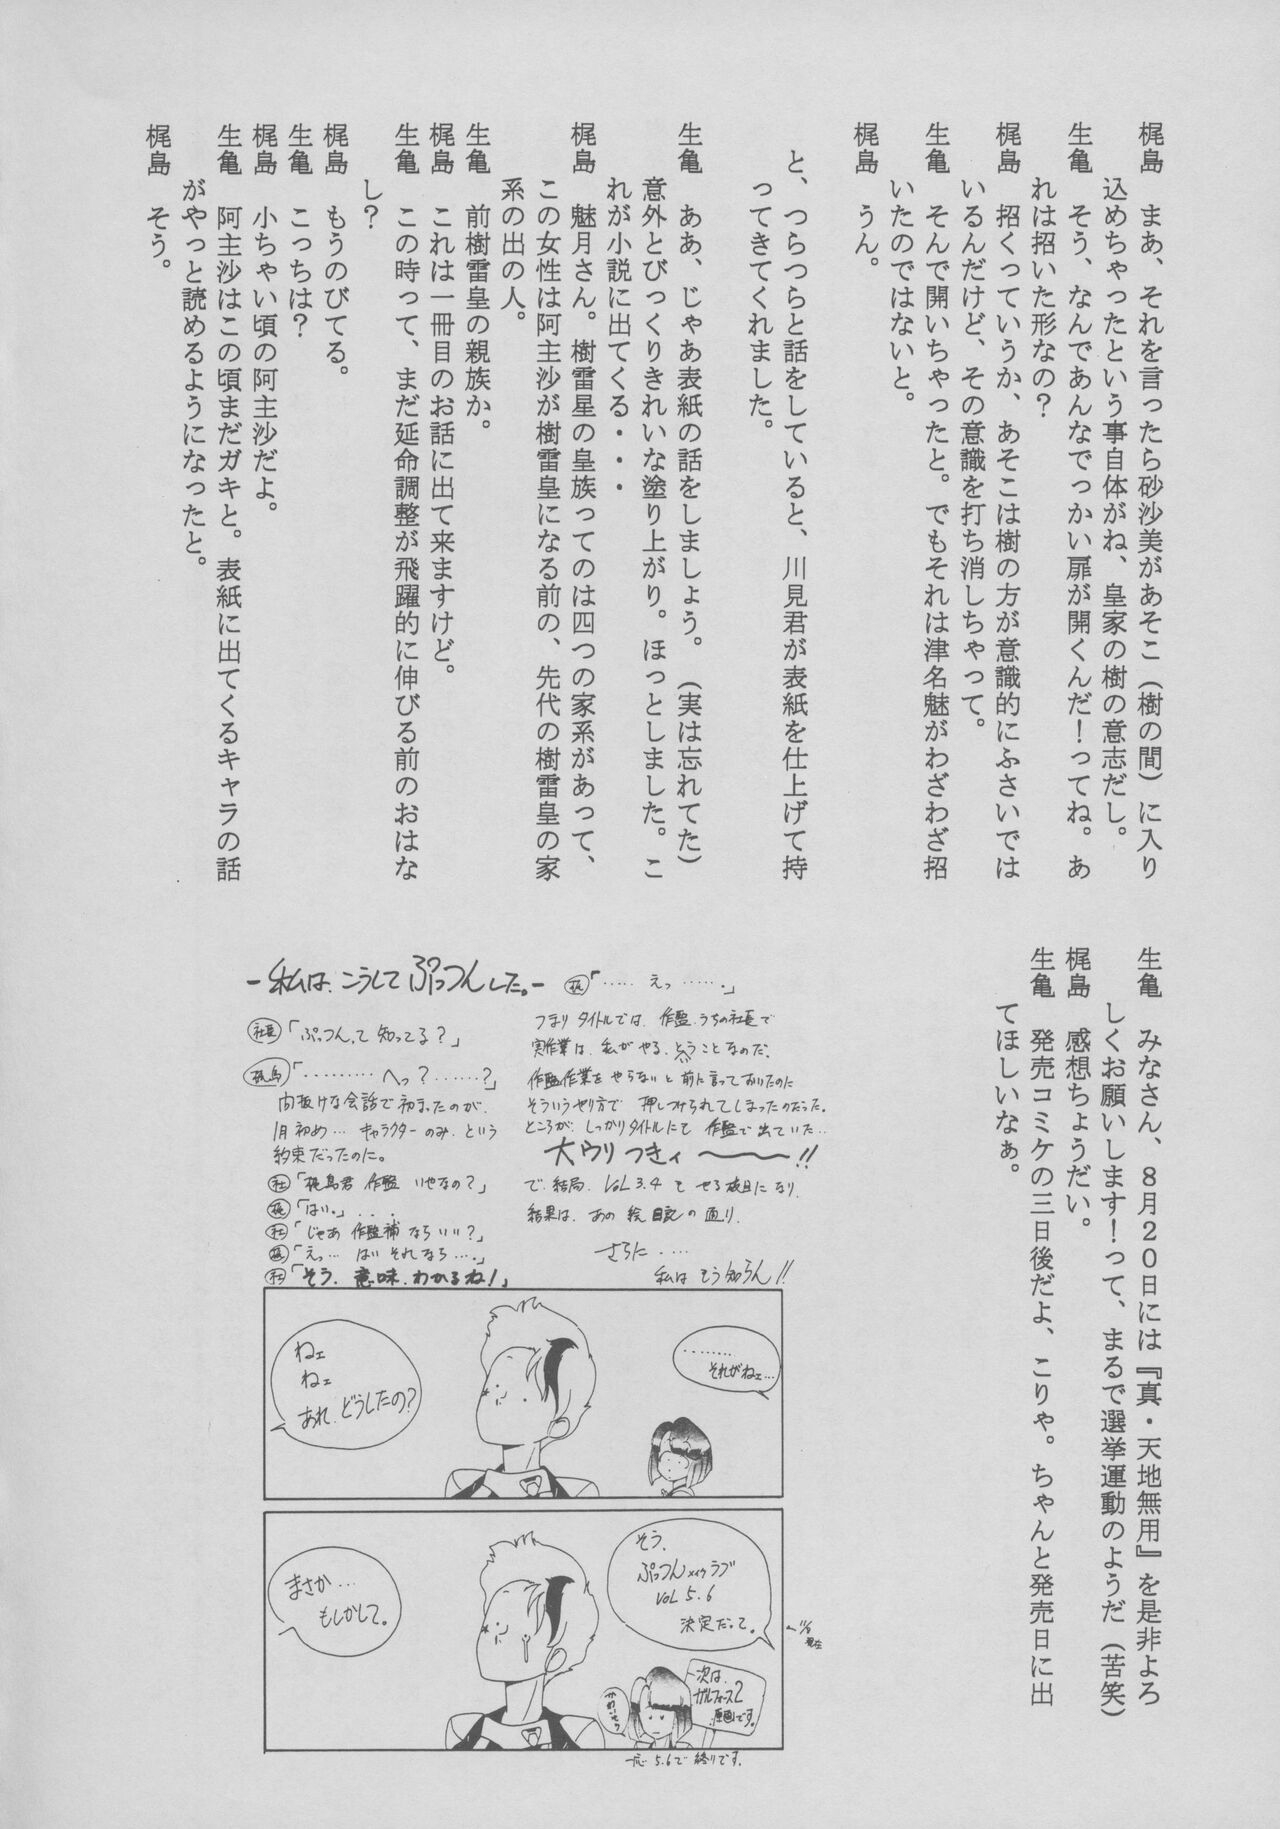 梶島　まあ、それを言ったら砂沙美があそこ（樹の間）に入り
込めちゃったという事自体がね、皇家の樹の意志だし。
生亀　そう、なんであんなでっかい扉が開くんだ！ってね。あ
れは招いた形なの？
梶島　招くっていうか、あそこは樹の方が意識的にふさいでは
いるんだけど、その意識を打ち消しちゃって。
生亀　そんで開いちゃったと。でもそれは津名魅がわざわざ招
いたのではないと。
梶島　うん。
と、つらつらと話をしていると、川見君が表紙を仕上げて持
ってきてくれました。
生亀　ああ、じゃあ表紙の話をしましょう。（実は忘れてた）
意外とびっくりきれいな塗り上がり。ほっとしました。こ
れが小説に出てくる・・・
梶島　魅月さん。樹雷星の皇族ってのは四つの家系があって、
この女性は阿主沙が樹雷皇になる前の、先代の樹雷皇の家
系の出の人。
生亀　前樹雷皇の親族か。
梶島　これは一冊目のお話に出て来ますけど。
生亀　この時って、まだ延命調整が飛躍的に伸びる前のおはな
し？
梶島　もうのびてる。
生亀　こっちは？
梶島　小ちゃい頃の阿主沙だよ。
生亀　阿主沙はこの頃まだガキと。表紙に出てくるキャラの話
がやっと読めるようになったと。
梶島　そう。
生亀　みなさん、８月２０日には『真・天地無用』を是非よろ
しくお願いします！って、まるで選挙運動のようだ（苦笑）
梶島　感想ちょうだい。
生亀　発売コミケの三日後だよ、こりゃ。ちゃんと発売日に出
てほしいなぁ。
－私は、こうして ぷっつんした。－
社長「ぷっつん、て 知ってる？」
梶島「………へっ？……？」
間抜けな会話で初まったのが、
1月初め… キャラクターのみ、という
約束だったのに。
社「梶島君 作監 いやなの？」
梶「はい。」...
社「じゃあ 作監補 ならいい？」
梶「えっ… はい それなら…。」
社「そう、意味、わかるね！」
梶「…… えっ ……。」
つまり タイトルでは、作監、うちの社長で
実作業は、私がやる、とゆうことなのだ。
作監作業を やらないと 前に言っておいたのに
そういうやり方で 押しつけられてしまったのだった。
ところが、しっかりタイトルにて 作監で出ていた…
大ウリつきィ ～～～!!
で、結局、VOL 3.4 も やる破目になり、
結果は、あの 絵 日記の通り、
さらに ....
私は もう知らん!!
ねェ
ねェ
あれ、どうしたの？
………
それがねェ…
まさか…
もしかして。
そう、
ぷっつんメイクラブ
VOL 5.6
決定だって。
次は、
ガルフォース2
原画です。
一応 5.6で 終りです。